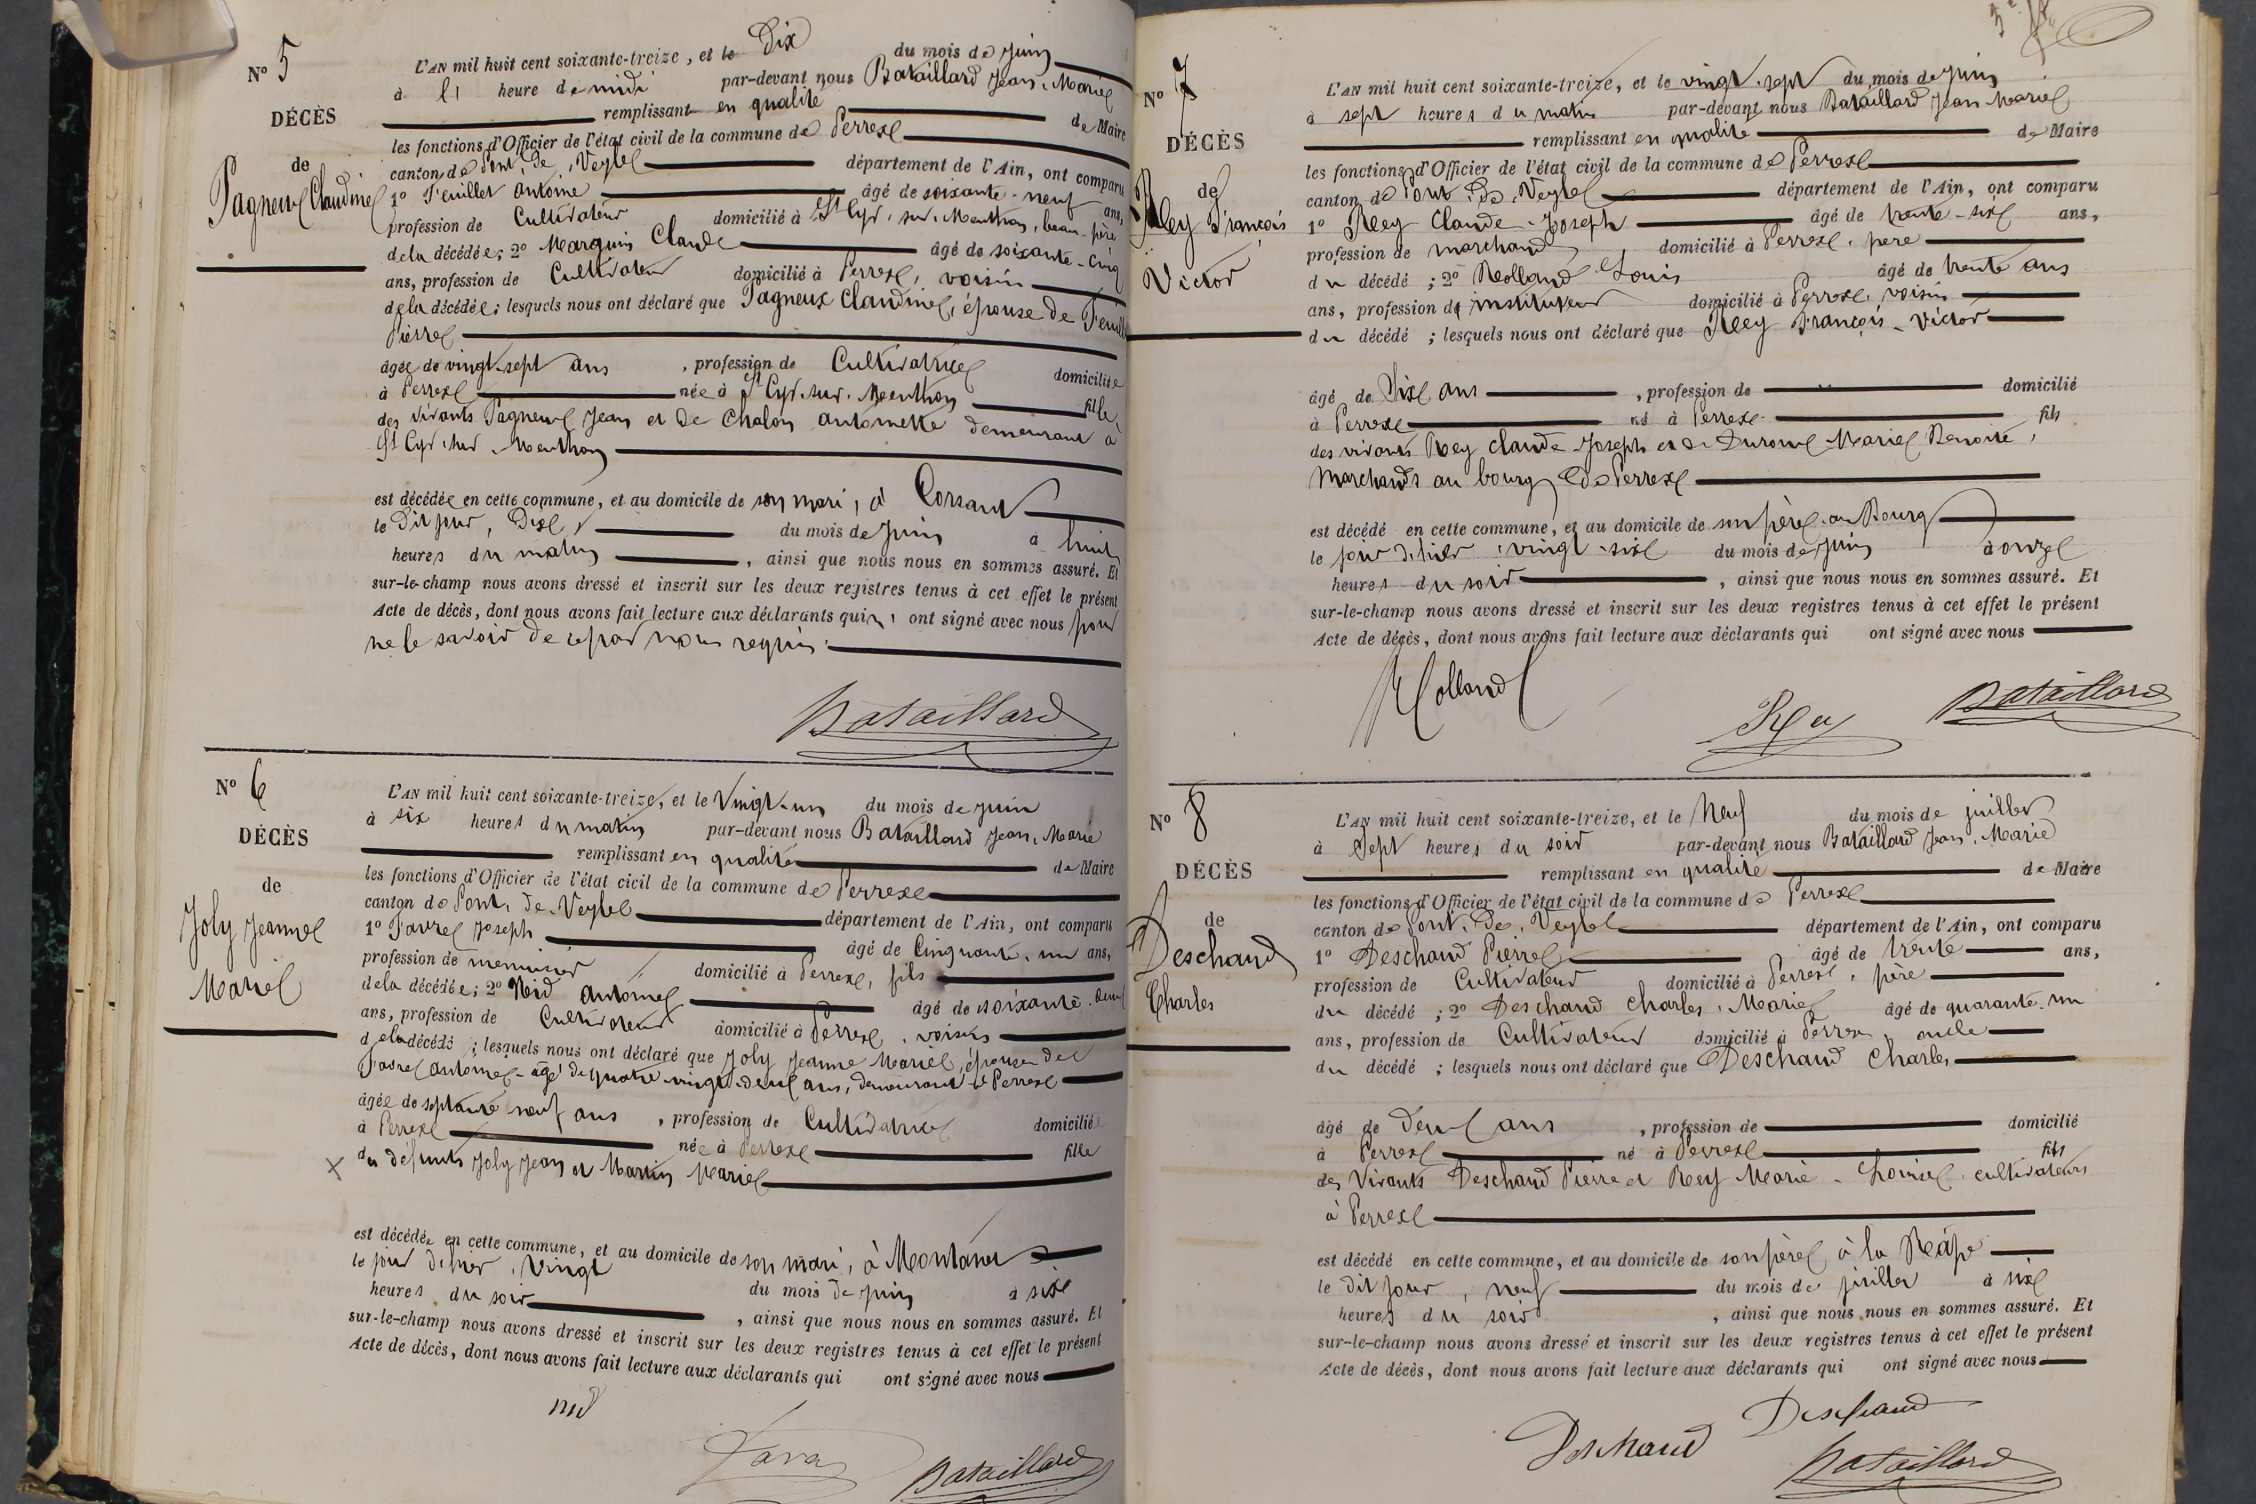 N° 5
DÉCÈS
de
Pagneux Claudine
L'AN mil huit cent soixante-treize, et le Dix du mois de juin
à heure de midi par-devant nous Bataillard Jean-Marie
remplissant en qualité de Maire
les fonctions d'Officier de l'état civil de la commune de Perrex
canton de Pont-de-Veyle département de l'Ain, ont comparu
1° Feuillet antoine âgé de soixante-neuf ans,
profession de Cultivateur domicilié à St Cyr-sur-Menthon, beau-père
de la décédée; 2° Marguin Claude âgé de soixante-cinq
ans, profession de Cultivateur domicilié à Perrex, voisin
de la décédée; lesquels nous ont déclaré que Pagneux Claudine, épouse de Feuill
Pierre
âgée de vingt-sept ans, profession de Cultivatrice domiciliée
à Perrex née à St Cyr-sur-Menthon fille
des vivants Pagneux Jean et de Chalon antoinette demeurant à
St Cyr-sur-Menthon
est décédée en cette commune, et au domicile de son mari, à Corsant
le Dit jour, Dix, du mois de juin à huit
heures du matin, ainsi que nous nous en sommes assuré. Et
sur-le-champ nous avons dressé et inscrit sur les deux registres tenus à cet effet le présent
Acte de décès, dont nous avons fait lecture aux déclarants qui n' ont signé avec nous pour
ne le savoir de ce par nous requis.
Bataillard
N° 6
DÉCÈS
de
Joly Jeanne
Marie
L'AN mil huit cent soixante-treize, et le Vingt-un du mois de juin
à six heures du matin par-devant nous Bataillard Jean-Marie
remplissant en qualité de Maire
les fonctions d'Officier de l'état civil de la commune de Perrex
canton de Pont-de-Veyle département de l'Ain, ont comparu
1° Favre Joseph âgé de Cinquante-un ans,
profession de menuisier domicilié à Perrex, fils
de la décédée; 2° Nid antoine âgé de soixante-deux
ans, profession de Cultivateur domicilié à Perrex, voisin
de la décédé; lesquels nous ont déclaré que Joly Jeanne Marie, épouse de
Favre antoine âgé de quatre-vingt-deux ans, demeurant à Perrex
âgée de septante neuf ans, profession de Cultivatrice domiciliée
à Perrex née à Perrex fille
des défunts Joly Jean et Martin Marie
est décédée en cette commune, et au domicile de son mari, à Montanet
le jour d'hier, vingt du mois de juin à six
heures du soir, ainsi que nous nous en sommes assuré. Et
sur-le-champ nous avons dressé et inscrit sur les deux registres tenus à cet effet le présent
Acte de décès, dont nous avons fait lecture aux déclarants qui ont signé avec nous
nid
Favre Bataillard
N° 7
DÉCÈS
de
Rey François
Victor
L'AN mil huit cent soixante-treize, et le vingt-sept du mois de juin
à sept heures du matin par-devant nous Bataillard Jean-Marie
remplissant en qualité de Maire
les fonctions d'Officier de l'état civil de la commune de Perrex
canton de Pont-de-Veyle département de l'Ain, ont comparu
1° Rey Claude-Joseph âgé de trente-six ans,
profession de marchand, domicilié à Perrex, père
du décédé; 2° Rolland Louis âgé de trente ans
ans, profession de instituteur domicilié à Perrex, voisin
du décédé; lesquels nous ont déclaré que Rey François-Victor
âgé de Dix ans, profession de domicilié
à Perrex né à Perrex fils
des vivants Rey Claude-Joseph et de Duroux Marie Benoite,
marchands au bourg de Perrex
est décédé en cette commune, et au domicile de son père au Bourg
le jour d'hier, vingt-six du mois de juin à onze
heures du soir, ainsi que nous nous en sommes assuré. Et
sur-le-champ nous avons dressé et inscrit sur les deux registres tenus à cet effet le présent
Acte de décès, dont nous avons fait lecture aux déclarants qui ont signé avec nous
Rolland
Rey
Bataillard
N° 8
DÉCÈS
de
Deschaud
Charles
L'AN mil huit cent soixante-treize, et le Neuf du mois de juillet
à Sept heures du soir par-devant nous Bataillard Jean-Marie
remplissant en qualité de Maire
les fonctions d'Officier de l'état civil de la commune de Perrex
canton de Pont-de-Veyle département de l'Ain, ont comparu
1° Deschaud Pierre âgé de trente ans,
profession de Cultivateur domicilié à Perrex, père
du décédé; 2° Deschaud Charles-Marie âgé de quarante-un
ans, profession de Cultivateur domicilié à Perrex, oncle
du décédé; lesquels nous ont déclaré que Deschaud Charles
âgé de deux ans, profession de domicilié
à Perrex né à Perrex fils
des Vivants Deschaud Pierre et Rey Marie cultivateurs
à Perrex
est décédé en cette commune, et au domicile de son père à la Réape
le dit jour, neuf du mois de juillet à six
heures du soir, ainsi que nous nous en sommes assuré. Et
sur-le-champ nous avons dressé et inscrit sur les deux registres tenus à cet effet le présent
Acte de décès, dont nous avons fait lecture aux déclarants qui ont signé avec nous
Deschaud Deschaud
Bataillard